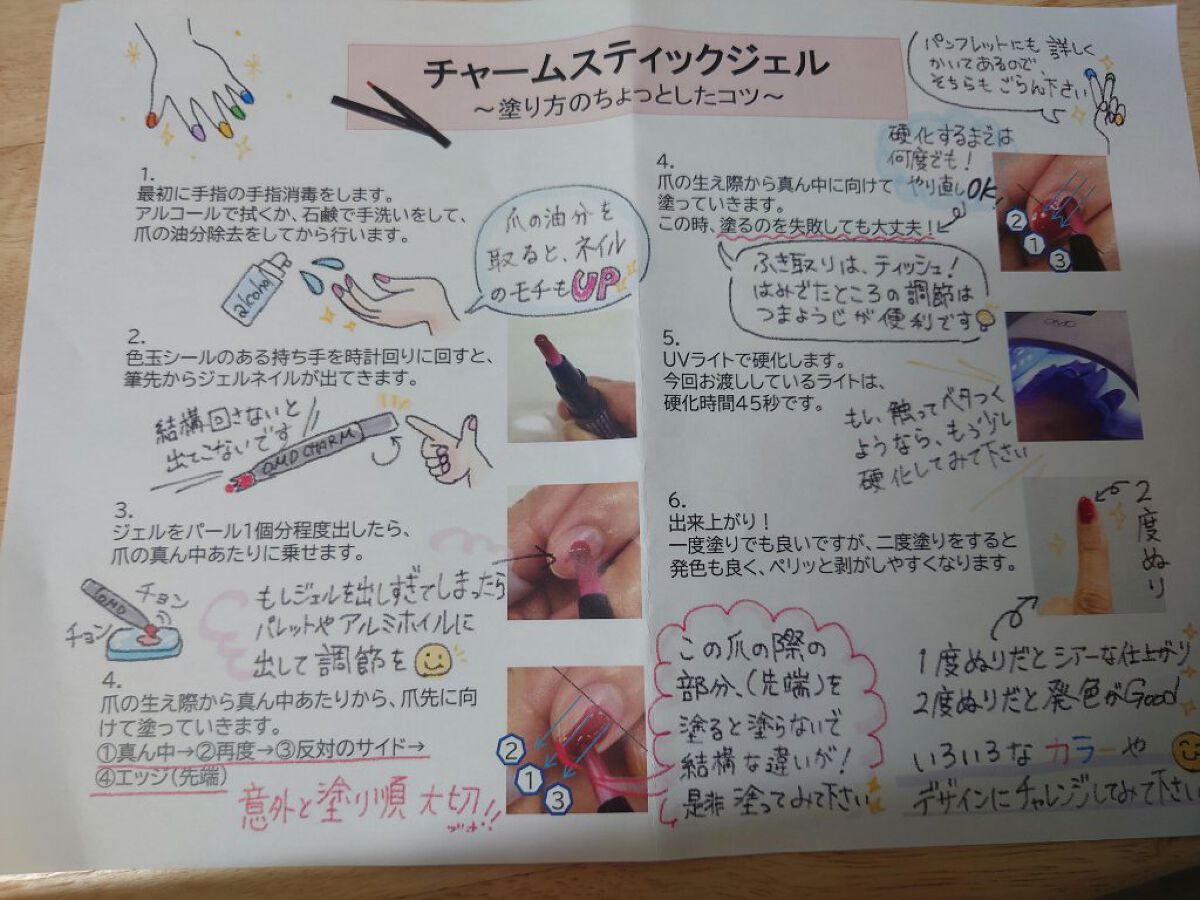 チャームスティックジェル
～塗り方のちょっとしたコツ～
パンフレットにも詳しく
かいてあるので、
そちらもごらん下さい
1.
最初に手指の手指消毒をします。
アルコールで拭くか、石鹸で手洗いをして、
爪の油分除去をしてから行います。
alcohol
爪の油分を
取ると、ネイル
のモチもUP
2.
色玉シールのある持ち手を時計回りに回すと、
筆先からジェルネイルが出てきます。
結構回さないと
出てこないです
OMD CHARM
3.
ジェルをパール1個分程度出したら、
爪の真ん中あたりに乗せます。
OMD
チョン
チョン
もしジェルを出しすぎてしまったら
パレットやアルミホイルに
出して調節を
4.
爪の生え際から真ん中あたりから、爪先に向
けて塗っていきます。
①真ん中→②再度→③反対のサイド→
④エッジ（先端）
意外と塗り順 大切!!
②
①
③
この爪の際の
部分、(先端)を
塗ると塗らないで
結構な違いが!
是非 塗ってみて下さい
4.
爪の生え際から真ん中に向けて
塗っていきます。
この時、塗るのを失敗しても大丈夫！
硬化するまでは
何度でも!
やり直しOK!
②
①
③
ふき取りは、ティッシュ!
はみでたところの調節は
つまようじが便利です
5.
UVライトで硬化します。
今回お渡ししているライトは、
硬化時間45秒です。
もし、触ってベタつく
ようなら、もう少し
硬化してみて下さい
6.
出来上がり！
一度塗りでも良いですが、二度塗りをすると
発色も良く、ペリッと剥がしやすくなります。
2度ぬり
1度ぬりだとシアーな仕上がり
2度ぬりだと発色がGood
いろいろなカラーや
デザインにチャレンジしてみて下さい